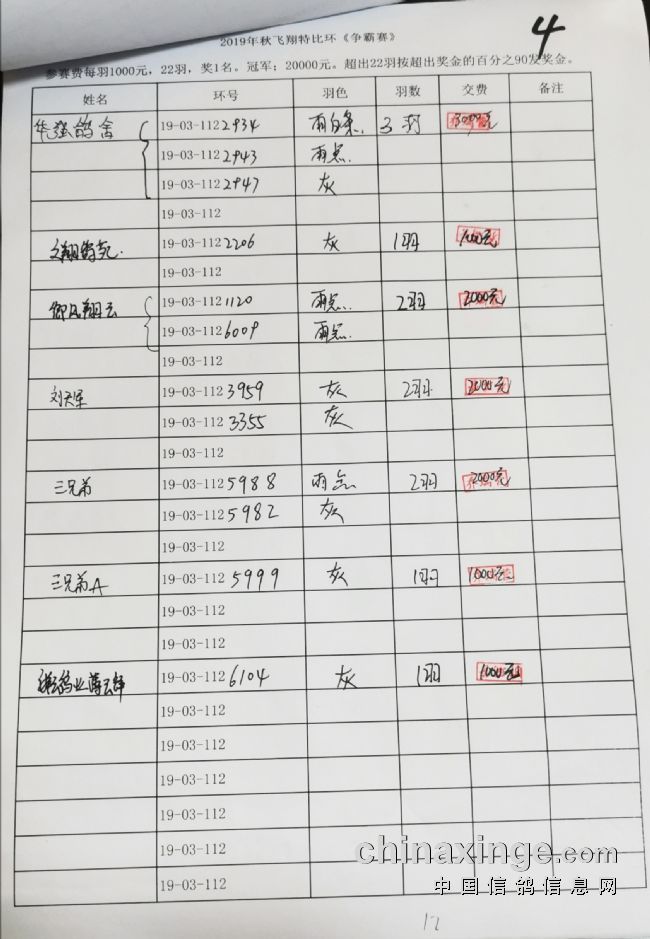 4
2019年秋飞翔特比环《争霸赛》
参赛费每羽1000元，22羽，奖1名。冠军：20000元。超出22羽按超出奖金的百分之90发奖金。
姓名 环号 羽色 羽数 交费 备注
华强鸽舍 19-03-112 2934 雨白条. 3羽 3000元
19-03-112 2943 雨点.
19-03-112 2947 灰
19-03-112
翔鸽苑. 19-03-112 2206 灰 1羽 1000元
19-03-112
御风翔云 19-03-112 1120 雨点. 2羽 2000元
19-03-112 6009 雨点.
19-03-112
刘天军 19-03-112 3959 灰 2羽. 2000元
19-03-112 3355 灰
19-03-112
三兄弟 19-03-112 5988 雨点 2羽 2000元
19-03-112 5982 灰
19-03-112
三兄弟A 19-03-112 5999 灰 1羽 1000元
19-03-112
19-03-112
鸽业 19-03-112 6104 灰 1羽 1000元
19-03-112
19-03-112
19-03-112
19-03-112
19-03-112
19-03-112
chinaxinge.com
中国信鸽信息网
12